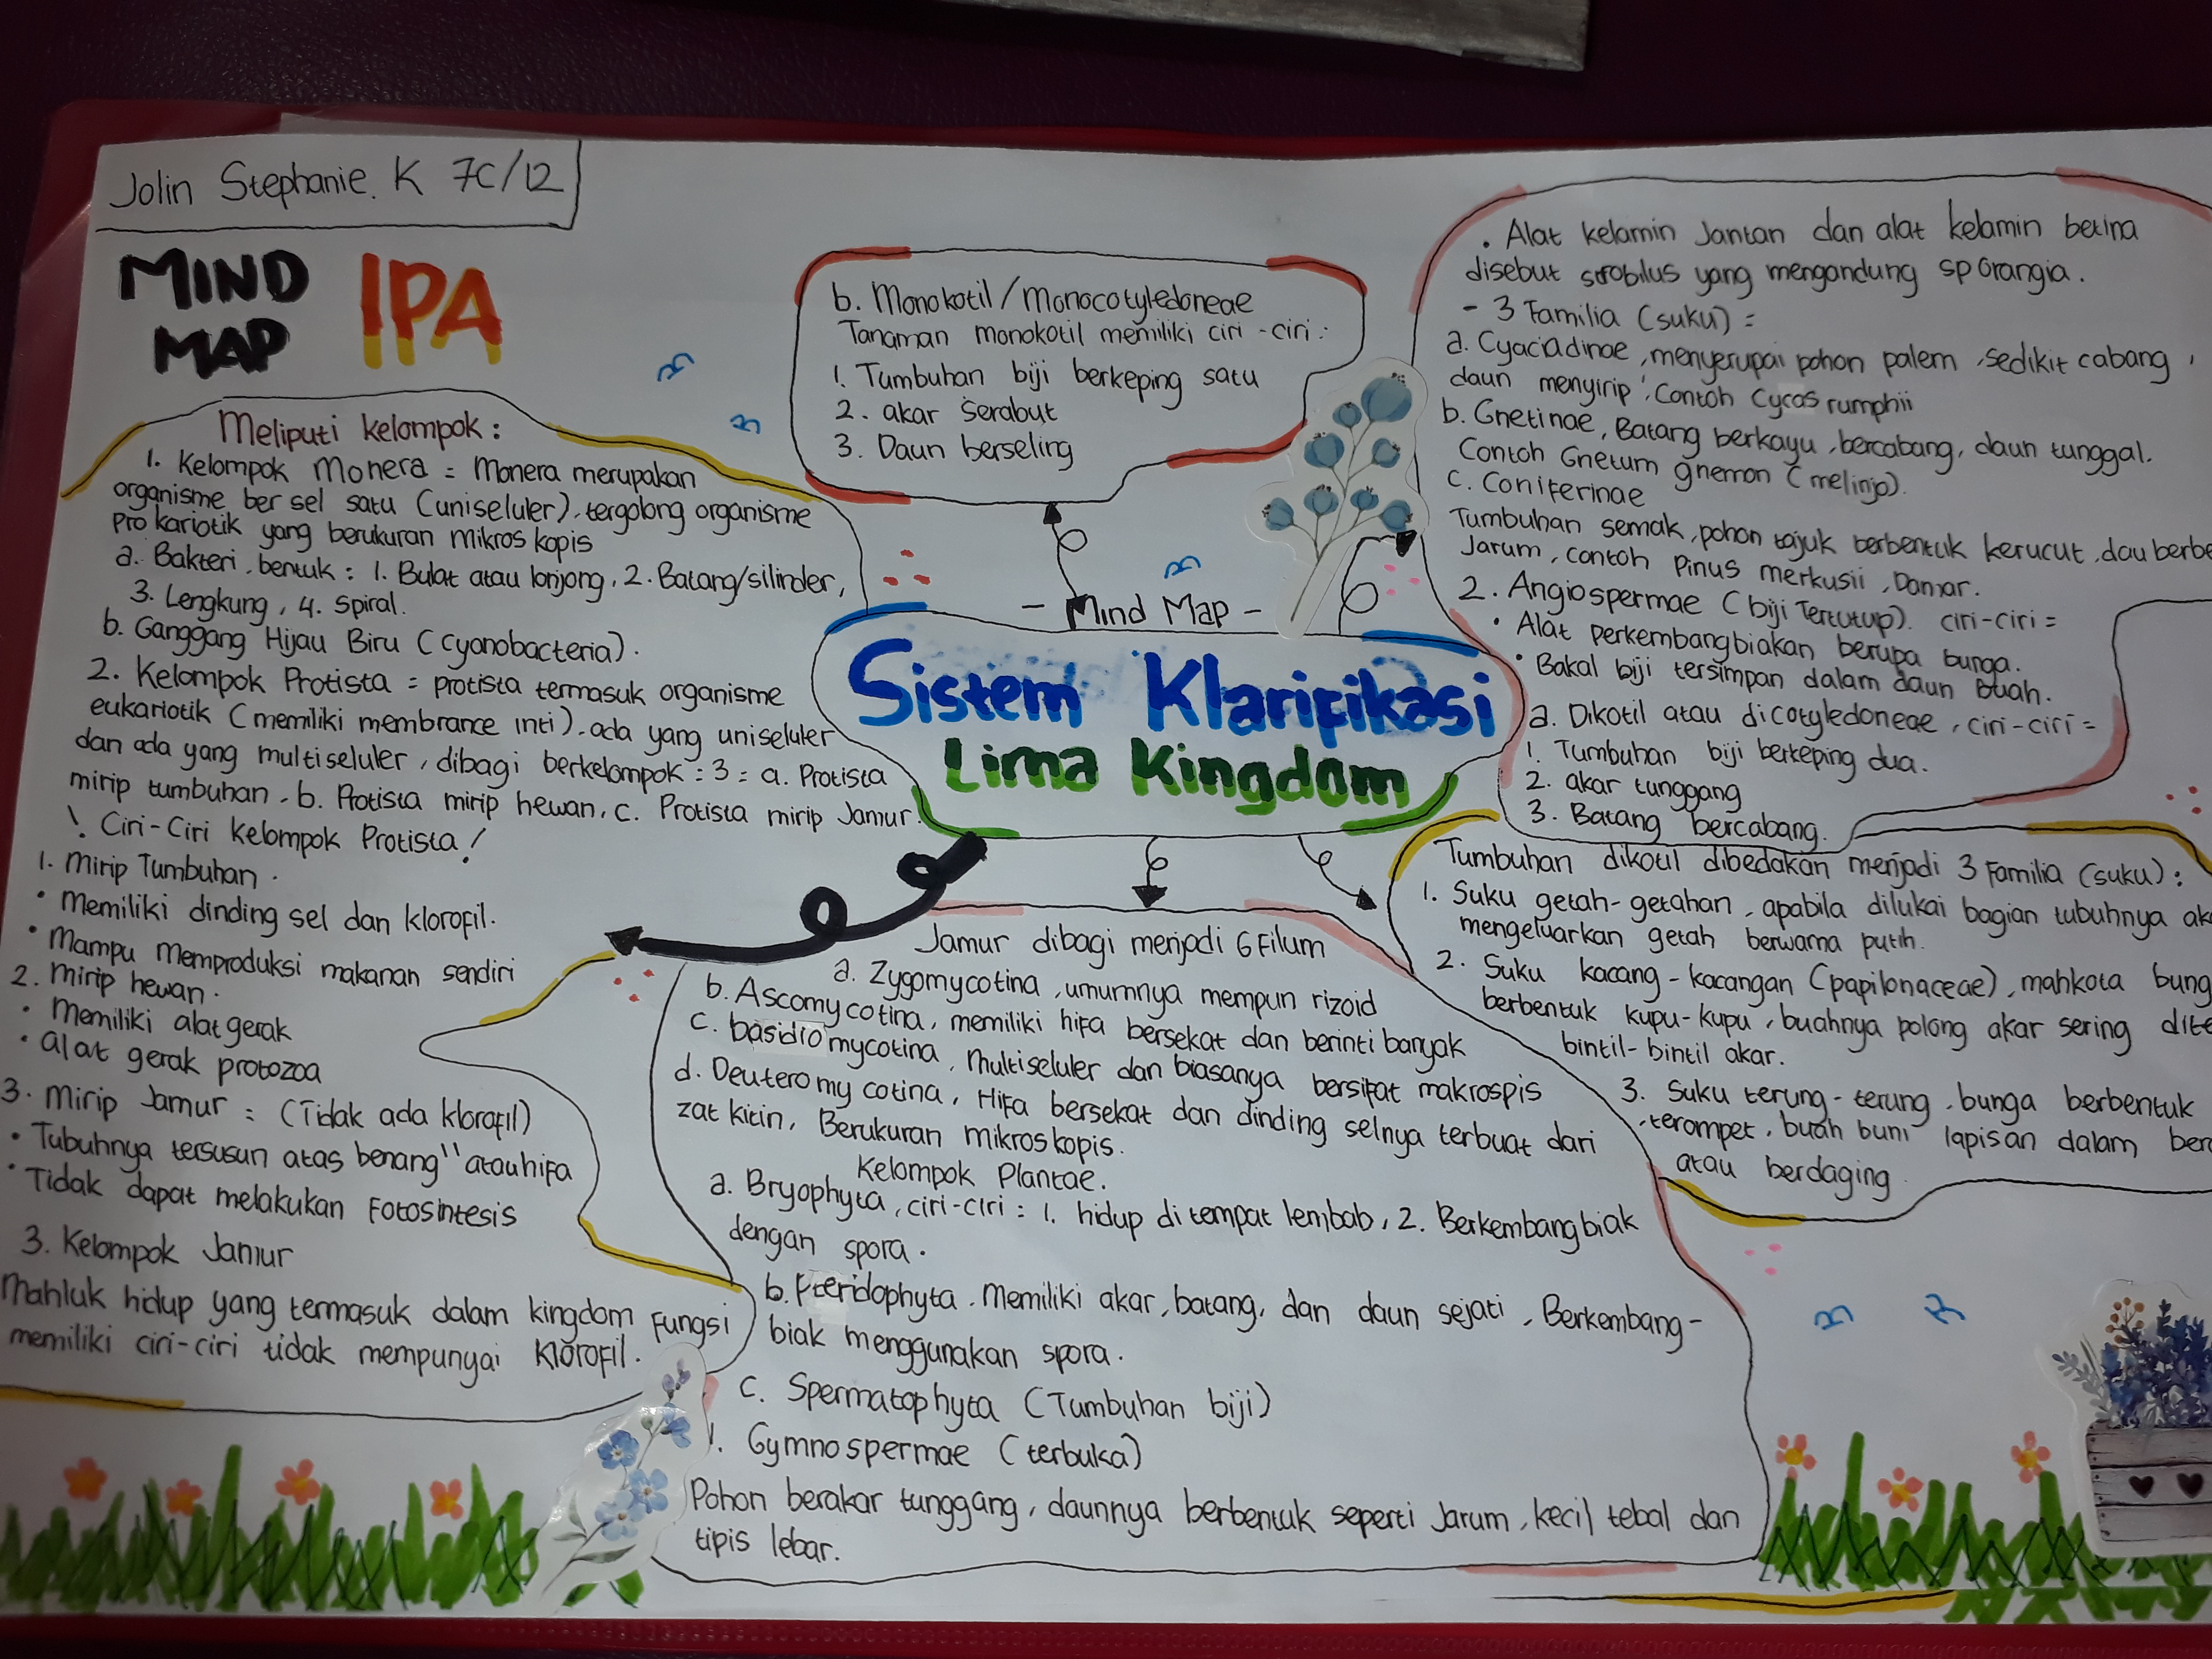 Jolin Stephanie. K 7C/12
MIND
MAP
IPA
Meliputi kelompok :
1. Kelompok Monera = Monera merupakan
organisme ber sel satu (uniseluler), tergolong organisme
prokariotik yang berukuran mikroskopis
a. Bakteri, bentuk : 1. Bulat atau lonjong, 2. Batang/silinder,
3. Lengkung, 4. Spiral.
b. Ganggang Hijau Biru (cyanobacteria).
2. Kelompok Protista = protista termasuk organisme
eukariotik (memiliki membrance inti), ada yang uniseluler
dan ada yang multiseluler, dibagi berkelompok : 3 = a. Protista
mirip tumbuhan, b. Protista mirip hewan, c. Protista mirip Jamur.
! Ciri-Ciri kelompok Protista !
1. Mirip Tumbuhan.
• Memiliki dinding sel dan klorofil.
• Mampu Memproduksi makanan sendiri
2. Mirip hewan.
• Memiliki alat gerak
• alat gerak protozoa
3. Mirip Jamur = (Tidak ada klorofil)
• Tubuhnya tersusun atas benang" atau hifa
• Tidak dapat melakukan Fotosintesis
3. Kelompok Jamur
Mahluk hidup yang termasuk dalam kingdom Fungsi
memiliki ciri-ciri tidak mempunyai Klorofil.
b. Monokotil/Monocotyledoneae
Tanaman monokotil memiliki ciri-ciri :
1. Tumbuhan biji berkeping satu
2. akar serabut
3. Daun berseling
- Mind Map -
Sistem Klarifikasi
Lima Kingdom
Jamur dibagi menjadi 6 Filum
a. Zygomycotina, umumnya mempun rizoid
b. Ascomycotina, memiliki hifa bersekat dan berinti banyak
c. basidiomycotina, Multiseluler dan biasanya bersifat makrospis
d. Deuteromycotina, Hifa bersekat dan dinding selnya terbuat dari
zat kitin, Berukuran mikroskopis.
Kelompok Plantae.
a. Bryophyta, ciri-ciri : 1. hidup di tempat lembab, 2. Berkembangbiak
dengan spora.
b. Pteridophyta. Memiliki akar, batang, dan daun sejati, Berkembang-
biak menggunakan spora.
c. Spermatophyta (Tumbuhan biji)
1. Gymnospermae (terbuka)
Pohon berakar tunggang, daunnya berbentuk seperti Jarum, kecil tebal dan
tipis lebar.
• Alat kelamin Jantan dan alat kelamin betina
disebut strobilus yang mengandung sporangia.
- 3 Familia (suku) =
a. Cyacadinae, menyerupai pohon palem, sedikit cabang,
daun menyirip, Contoh Cycas rumphii
b. Gnetinae, Batang berkayu, bercabang, daun tunggal.
Contoh Gnetum gnemon (melinjo).
c. Coniferinae
Tumbuhan semak, pohon tajuk berbentuk kerucut, dau berbe
Jarum, contoh Pinus merkusii, Damar.
2. Angiospermae (biji Tertutup). ciri-ciri =
• Alat perkembangbiakan berupa bunga.
• Bakal biji tersimpan dalam daun Buah.
a. Dikotil atau dicotyledoneae, ciri-ciri =
1. Tumbuhan biji berkeping dua.
2. akar tunggang
3. Batang bercabang.
Tumbuhan dikotil dibedakan menjadi 3 Familia (suku) :
1. Suku getah-getahan, apabila dilukai bagian tubuhnya ak
mengeluarkan getah berwarna putih.
2. Suku kacang-kacangan (papilonaceae), mahkota bung
berbentuk kupu-kupu, buahnya polong akar sering dite
bintil-bintil akar.
3. Suku terung-terung, bunga berbentuk
terompet, buah buni lapisan dalam ber
atau berdaging.